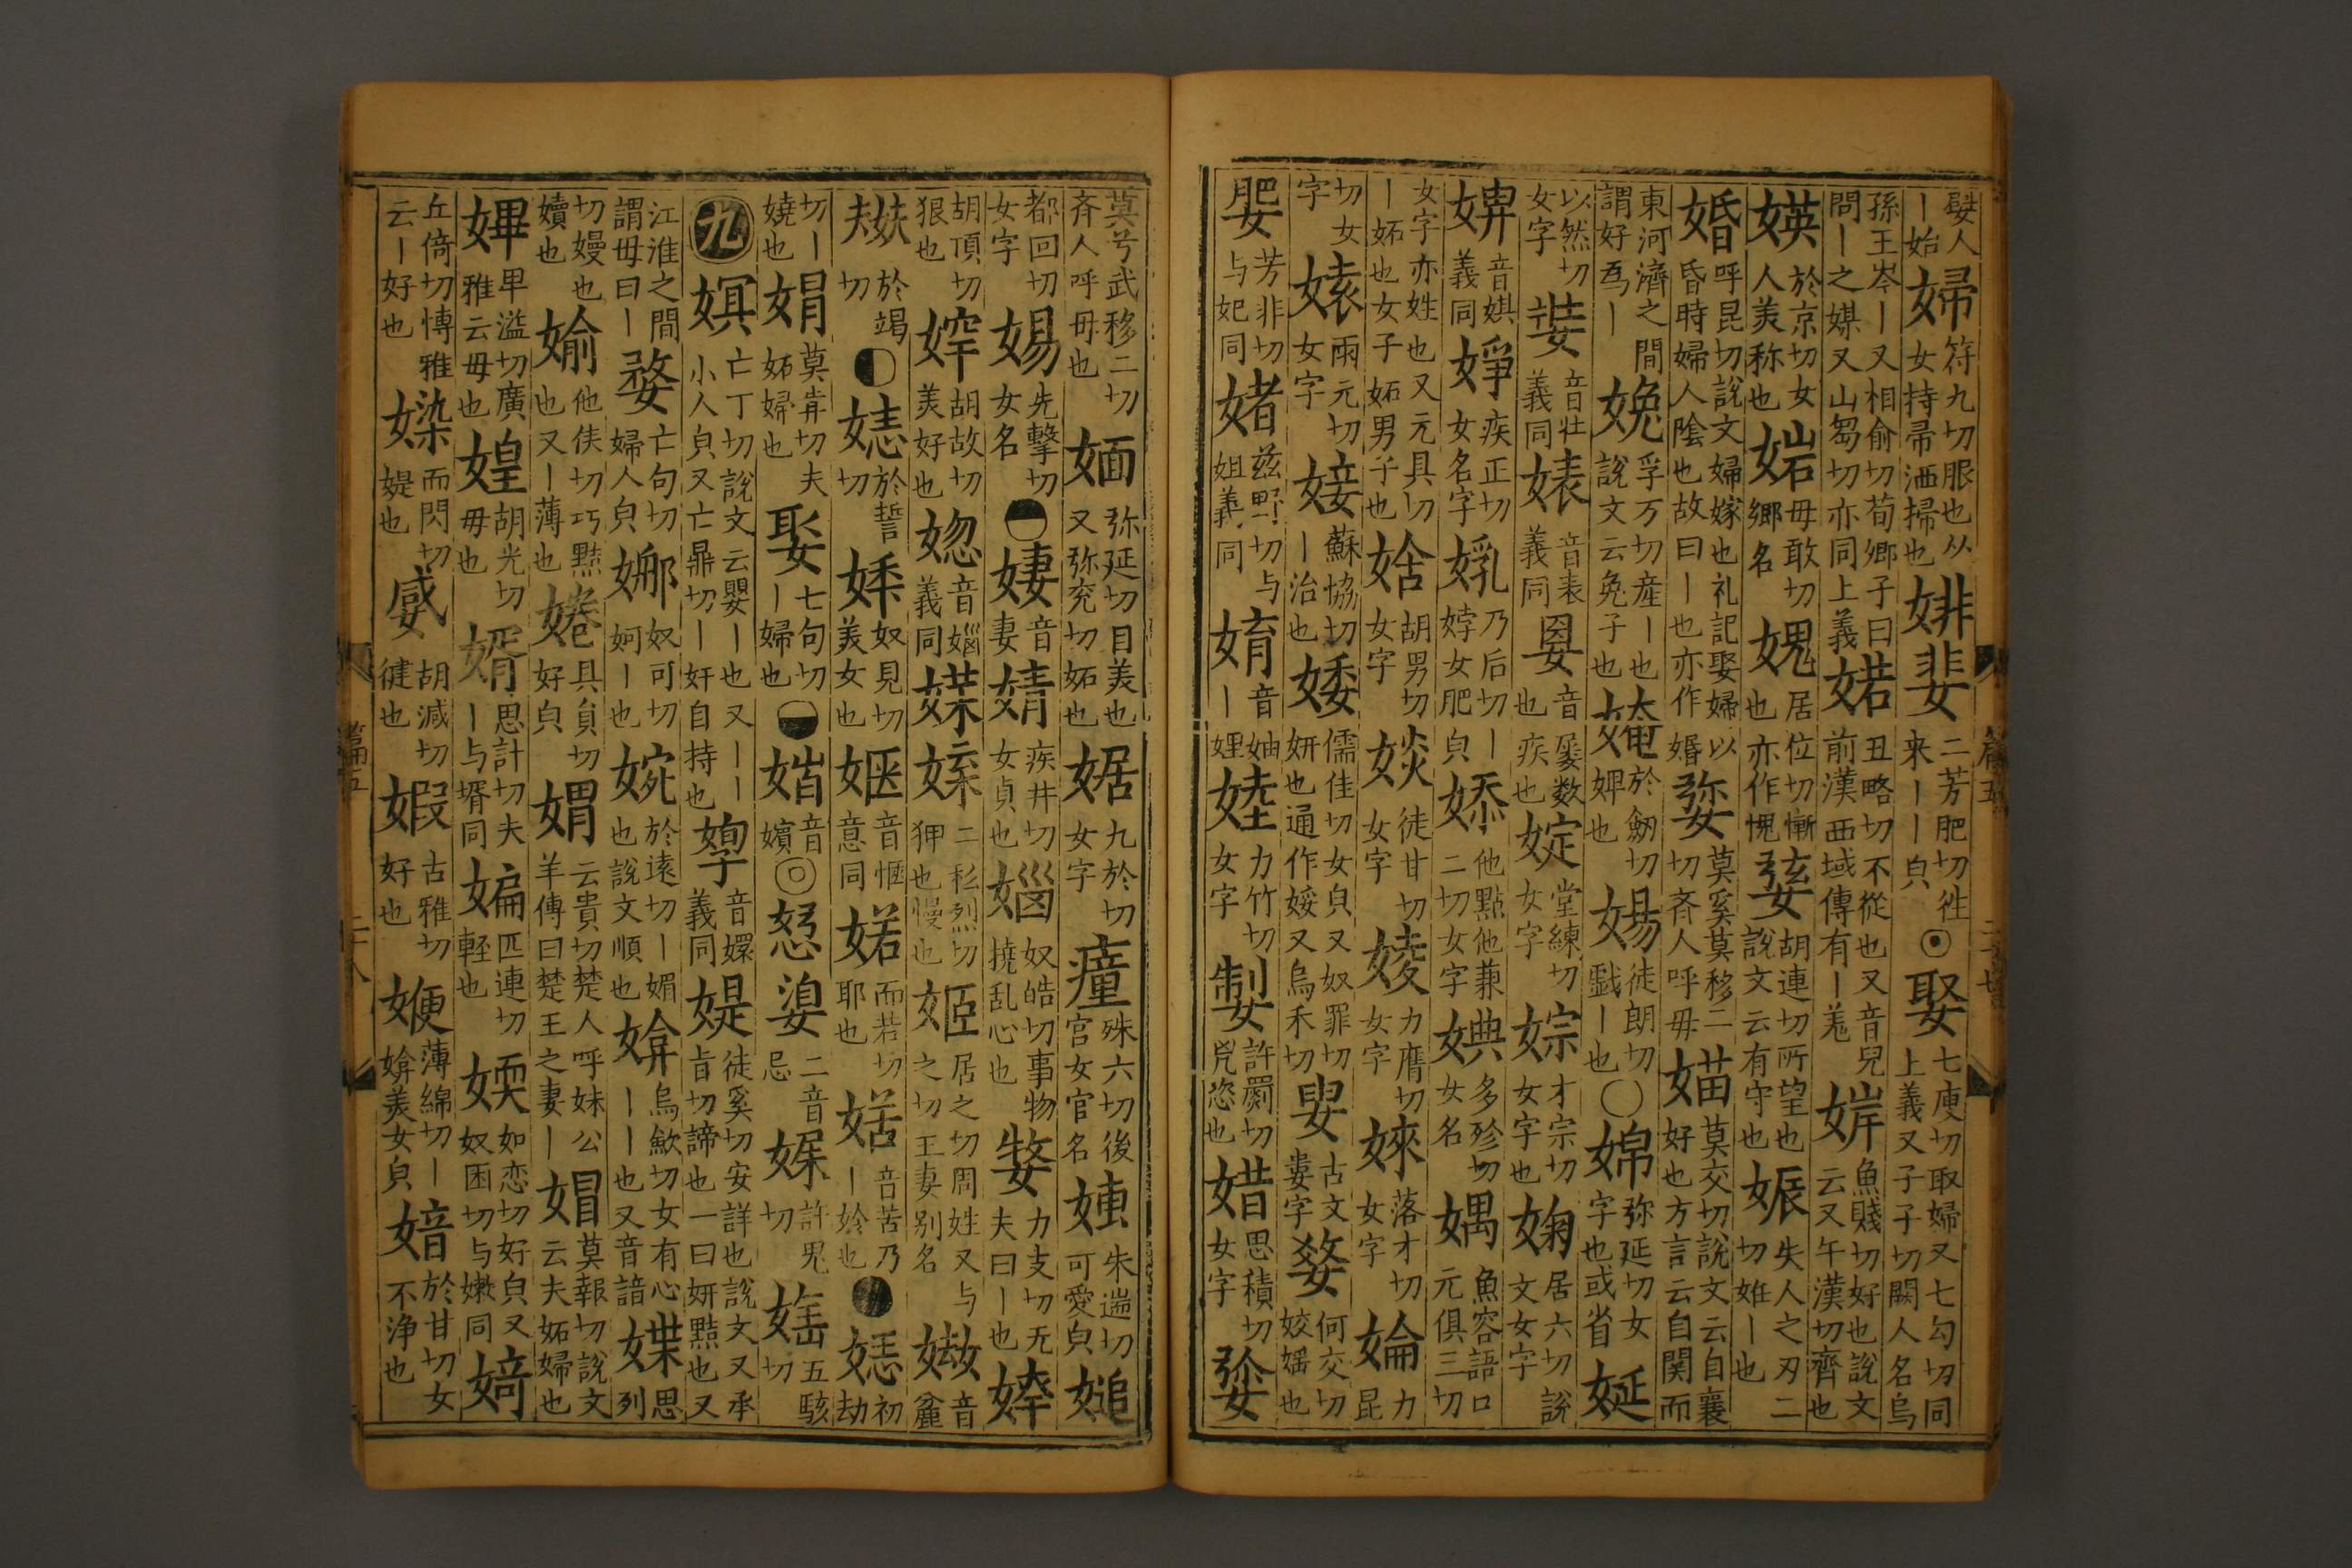 嬖人｜始婦符九切服也从女持帚洒掃也婔婓二芳肥切徃来｜｜皃娶七庾切取婦又七勾切同上義又子子切闕人名烏
孫王岑｜又相俞切荀卿子曰問｜之媒又山芻切亦同上義婼丑略切不從也又音兒前漢西域傳有｜羗婩魚賤切好也說文云又午漢切齊也
媖於京切女人美称也㛧毋敢切鄉名媿居位切慚也亦作愧娹胡連切所望也說文云有守也娠失人之刃二切㛗｜也
婚呼昆切說文婦嫁也礼記娶婦以昏時婦人陰也故曰｜也亦作婚㜆莫奚莫移二切斉人呼毋媌莫交切說文云自襄好也方言云自関而
東河濟之間謂好爲｜娩孚万切產｜也說文云兔子也媕於劒切婢也婸徒朗切戲｜也婂弥延切女字也或省娫
以然切女字娤音壮義同婊音表義同㛪音屡数也疾也婝堂練切女字婃才宗切女字也婅居六切說文女字
婩音娸義同婙疾正切女名字㛅乃后切｜㛛女肥皃婖他點他兼二切女字婰多殄切女名媀魚容語口元俱三切
女字亦姓也又元具切｜妬也女子妬男子也㛱胡男切女字婒徒甘切女字㥄力膺切女字婡落才切女字婨力昆
切女字㛲兩元切女字㛍蘇協切｜治也婑儒佳切女皃又奴罪切妍也通作娞又烏禾切㛮古文婁字婺何交切姣媱也
婔芳非切与妃同媎兹野切与姐義同㛢音妯｜娌婈力竹切女字㛿許罽切皃恣也㛭思積切女字㜆
莫兮武移二切斉人呼毋也婳弥延切目美也又弥兖切妬也婮九於切女字㾄殊六切後宮女官名㛔朱遄切可愛皃㛖
都回切女字婸先擊切女名㛹音妻婧疾井切女貞也㛴奴皓切事物撓乱心也㜘力支切无夫曰｜也婞
胡頂切狠也婟胡故切美好也㛴音㛴義同媟㛦二私列切狎也慢也姬居之切周姓又与之切王妻别名㜃音麄
㛂於竭切㛄於誓切㛋奴見切美女也㛪音惬意同婼而若切耶也㛐音苦乃｜姈也㛃初劫
切｜嬈也娟莫角切夫妬婦也娶七句切｜婦也㛳音嬪㥛㛸二音忌㛼許旡切㛬五駭切
九嫇亡丁切說文云嬰｜也又｜｜小人皃又亡鼎切｜奸自持也㜁音嬛義同媞徒奚切安詳也說文又承旨切諦也一曰妍黠也又
江淮之間謂毋曰｜婺亡句切婦人皃娜奴可切妸｜也婉於遠切｜媚也說文順也媕烏歛切女有心｜｜也又音諳媟思列
切嫚也嬻也媮他侯切巧黠也又｜薄也婘具負切好皃媦云貴切楚人呼妹公羊傳曰楚王之妻｜媢莫報切說文云夫妬婦也
㜑早溢切廣雅云毋也媓胡光切毋也婿思計切夫｜与壻同媥匹連切輕也媆如恋切好皃又奴困切与嫩同婍
丘倚切博雅云｜好也媣而閃切媞也㛾胡減切健也婽古雅切好也㛹薄綿切｜媕美女皃媕於甘切女不浄也
篇五
二十七
篇五
二十八